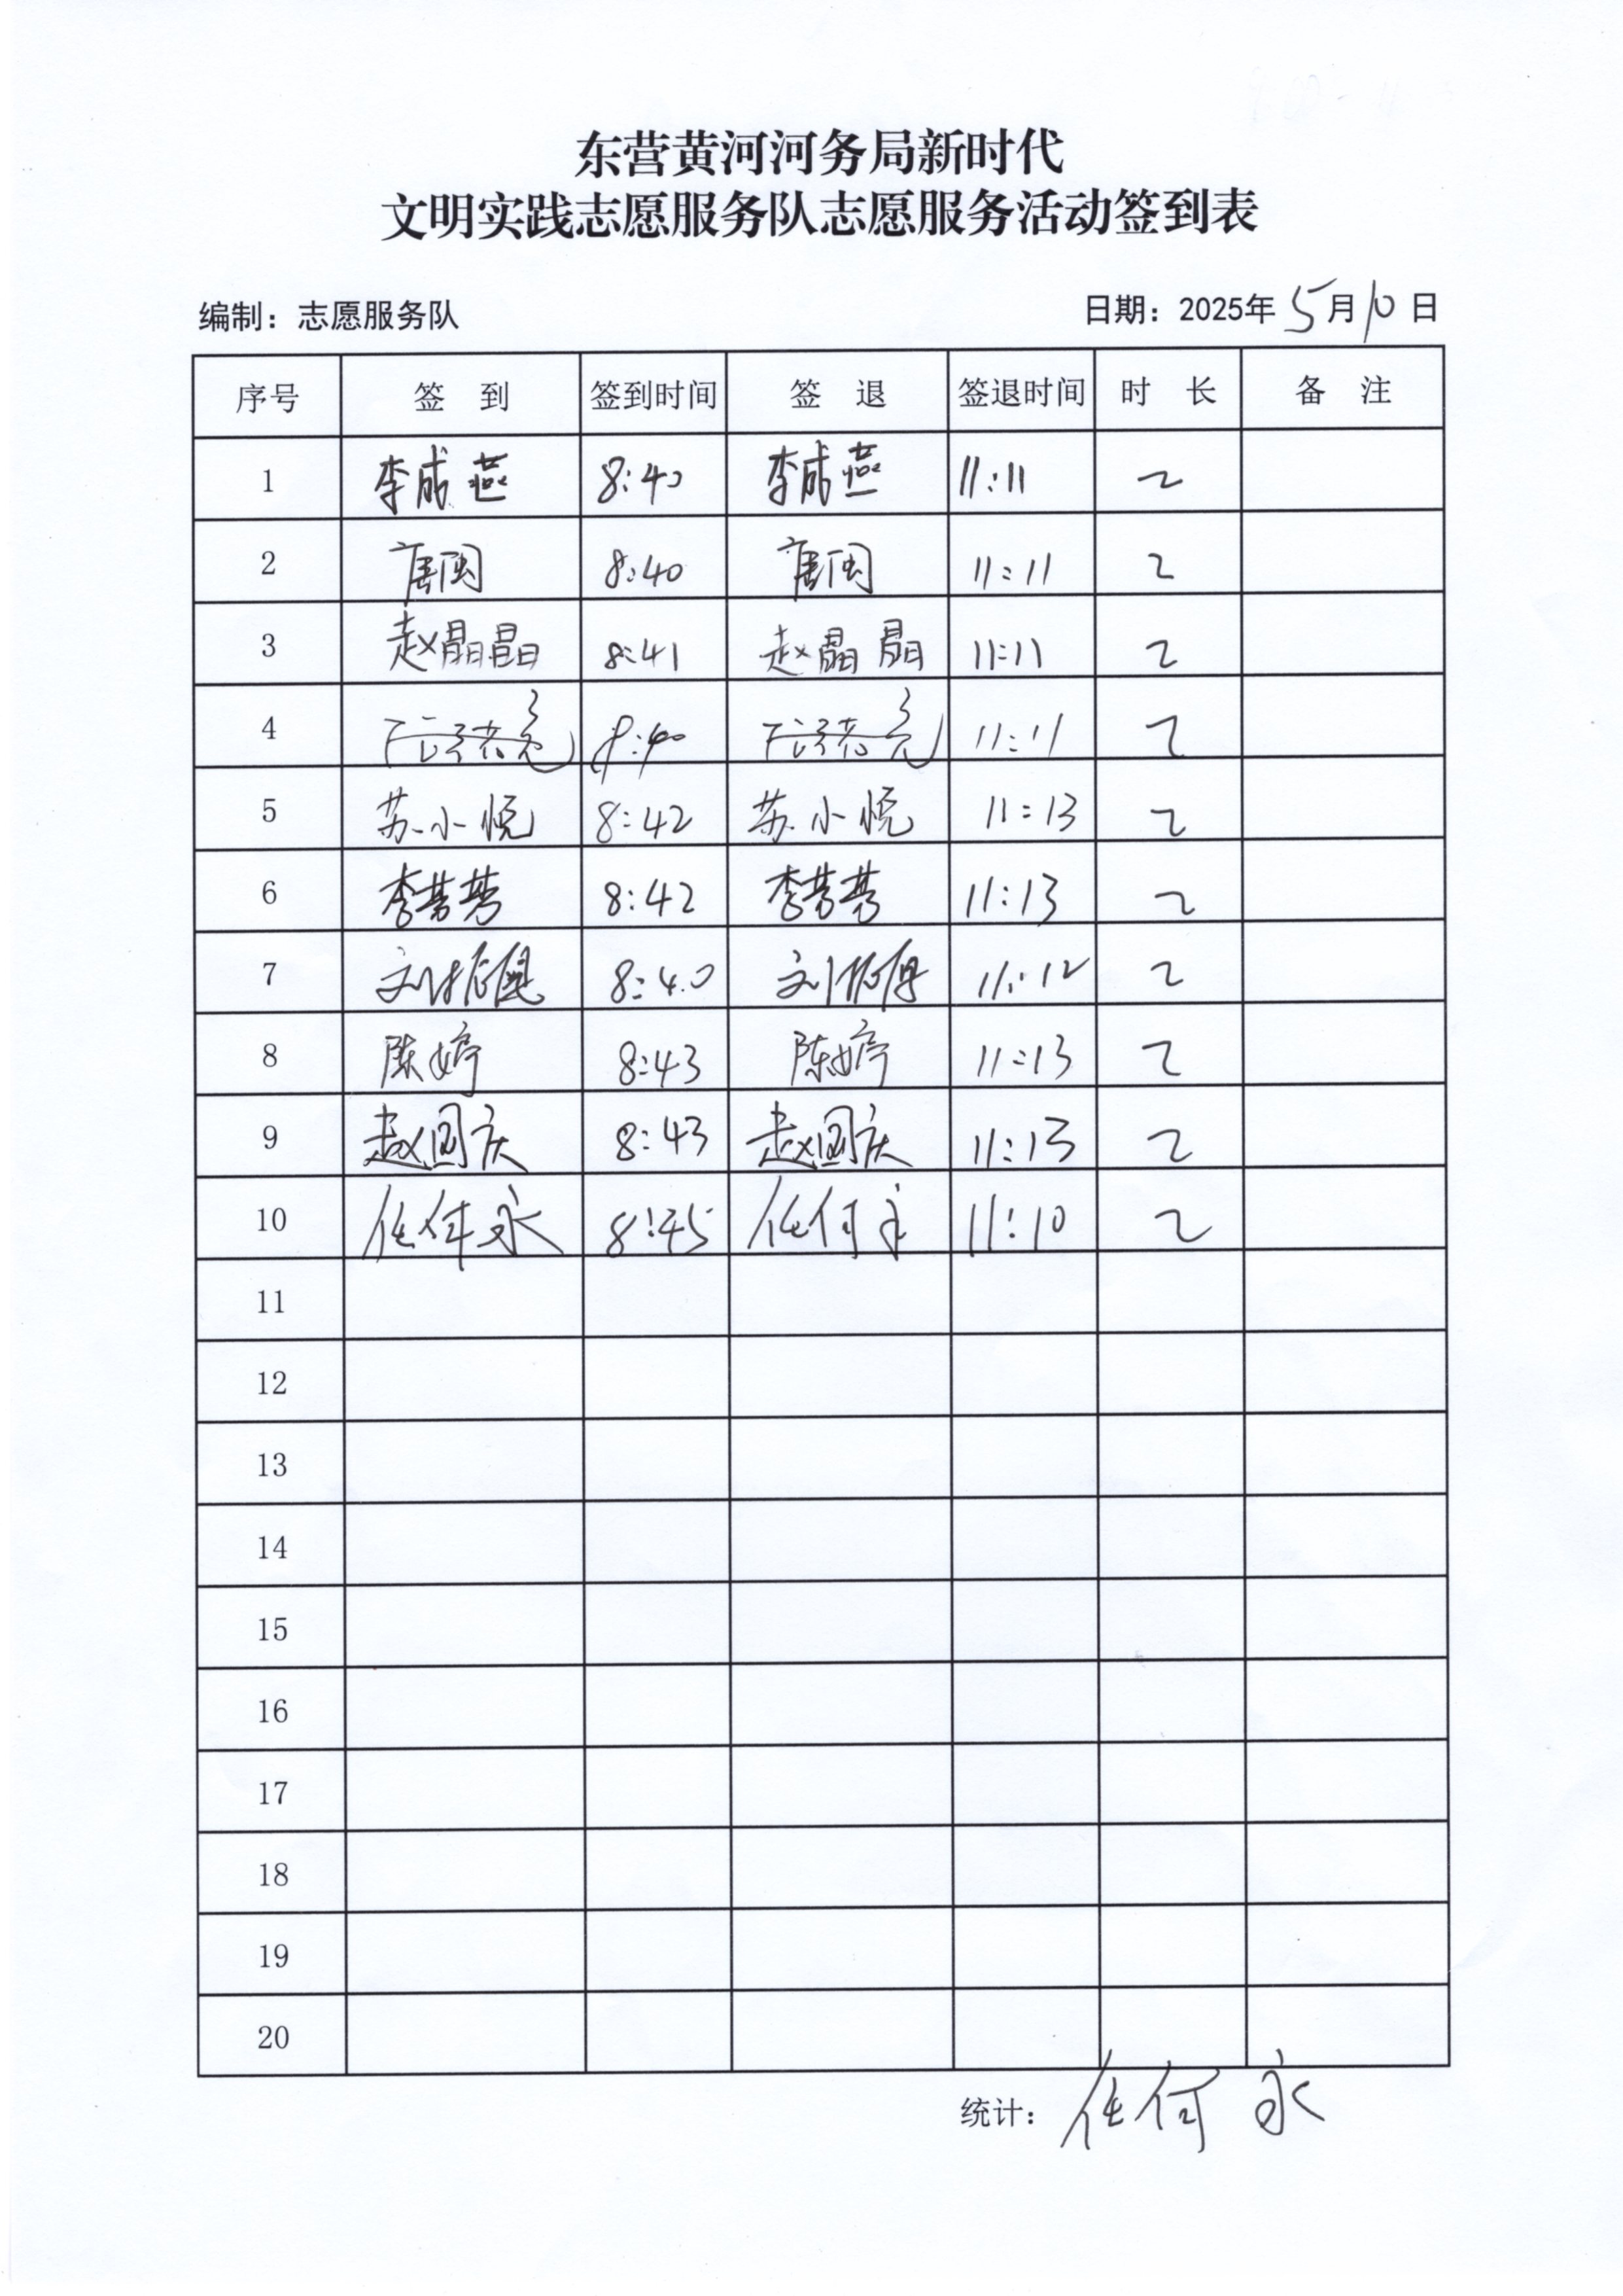 东营黄河河务局新时代
文明实践志愿服务队志愿服务活动签到表
编制：志愿服务队 日期：2025年5月10日
序号 签 到 签到时间 签 退 签退时间 时 长 备 注
1 李成燕 8:40 李成燕 11:11 2
2 唐闽 8:40 唐闽 11:11 2
3 赵晶晶 8:41 赵晶晶 11:11 2
4 8:40 11:11 2
5 苏小悦 8:42 苏小悦 11:13 2
6 李芳芳 8:42 李芳芳 11:13 2
7 刘振 8:40 刘振 11:12 2
8 陈婷 8:43 陈婷 11:13 2
9 赵国庆 8:43 赵国庆 11:13 2
10 任何永 8:45 任何永 11:10 2
11
12
13
14
15
16
17
18
19
20
统计：任何永